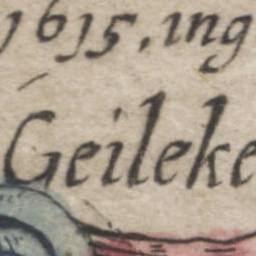 1615. ing
Geileke